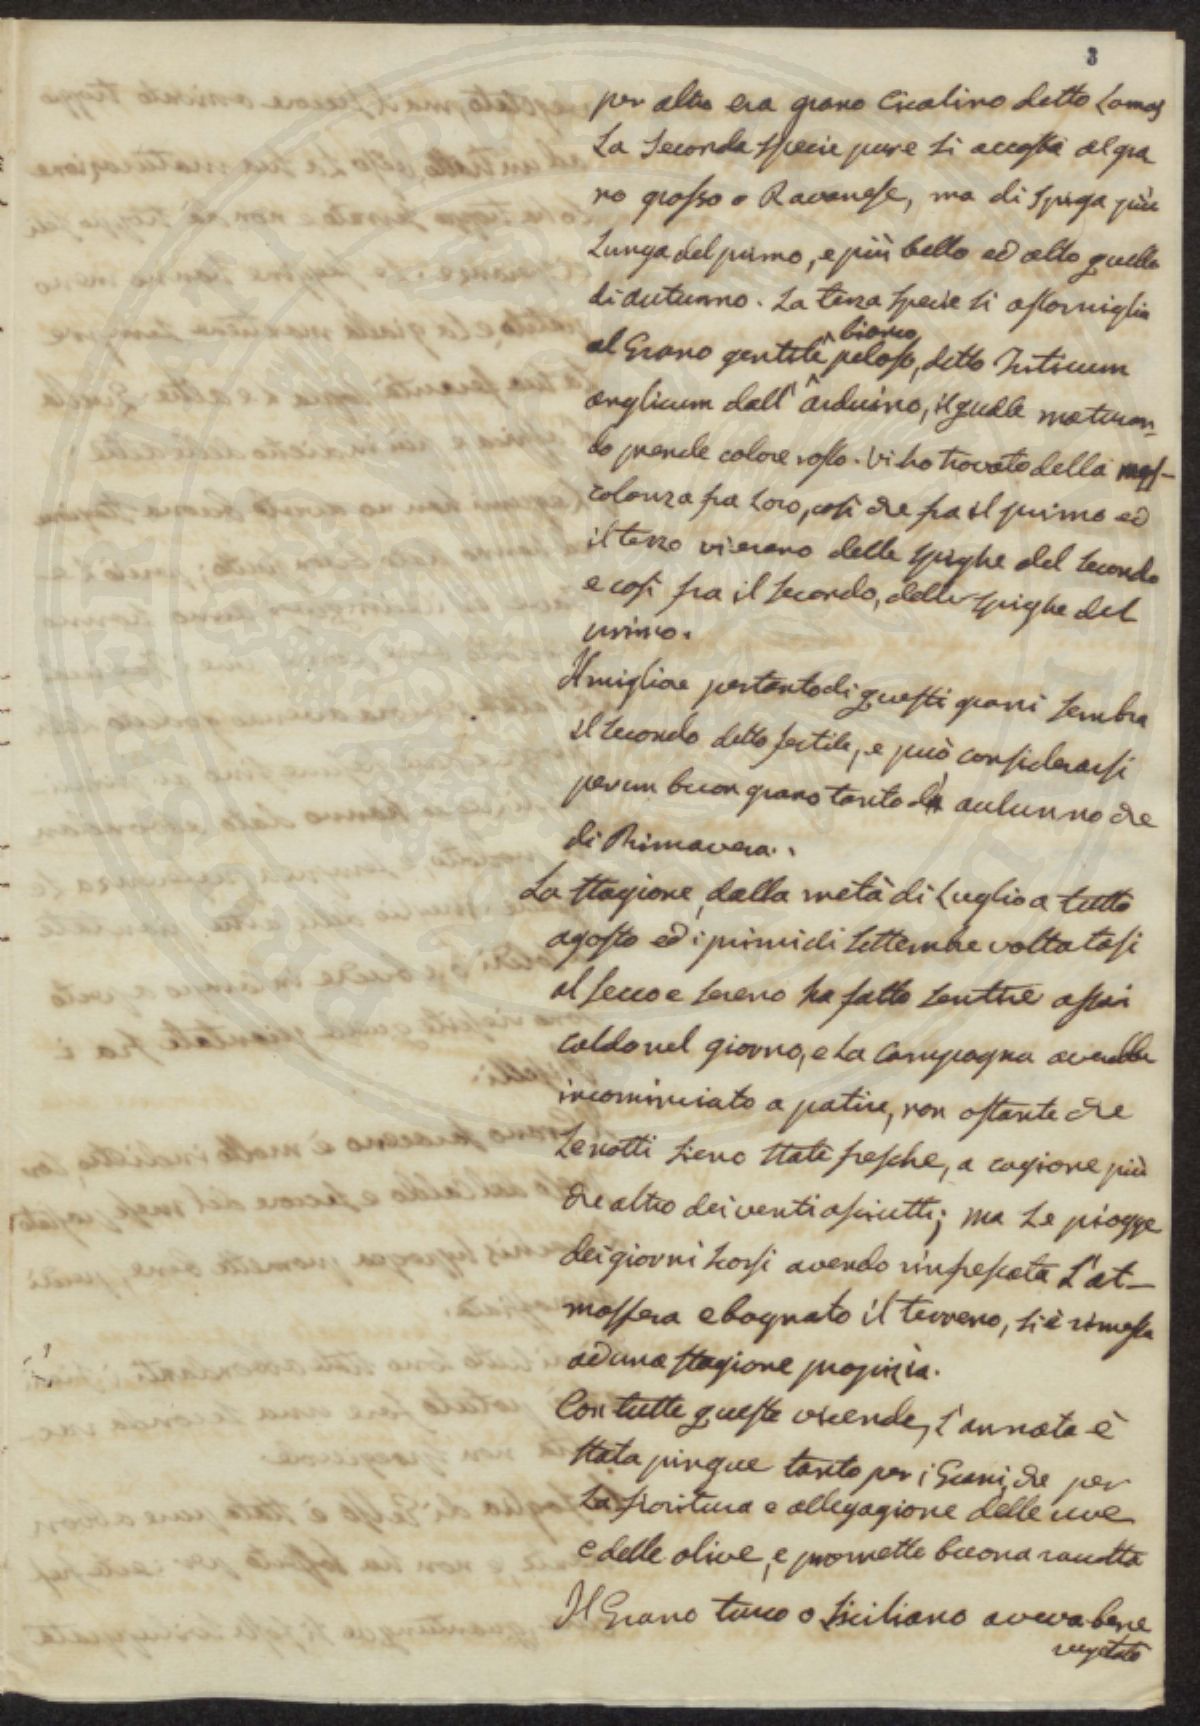 3
per altro era grano Cicalino detto Lamas
La Seconda Specie pure si accosta al gra
no grosso o Ravanese, ma di Spiga più
Lunga del primo, e più bello ed alto quello
di Autunno. La terza Specie si assomiglia
bianco
al Grano gentile peloso, detto Triticum
anglicum dall' Arduino, il quale maturan-
do prende colore rosso. Vi ho trovato della mes-
colanza fra Loro, così che fra il primo ed
il terzo vi erano delle Spighe del Secondo
e così fra il Secondo, delle Spighe del
primo.
Il migliore pertanto di questi grani Sembra
il Secondo detto fertile, e può considerarsi
per un buon grano tanto di autunno che
di Primavera.
La Stagione, dalla metà di Luglio a tutto
agosto ed i primi di Settembre voltatasi
al Secco e Sereno ha fatto Sentire assai
caldo nel giorno, e La Campagna averebbe
incominciato a patire, non ostante che
Le notti Sieno State fresche, a cagione più
che altro dei venti asciutti; ma Le piogge
dei giorni Scorsi avendo rinfrescata L'at-
mosfera e bagnato il terreno, Si è rimessa
ad una Stagione propizia.
Con tutte queste vicende, L'annata è
Stata pingue tanto per i Grani, che per
La fioritura e allegagione delle uve
e delle olive, e promette buona raccolta
Il Grano turco o Siciliano aveva bene
vegetato